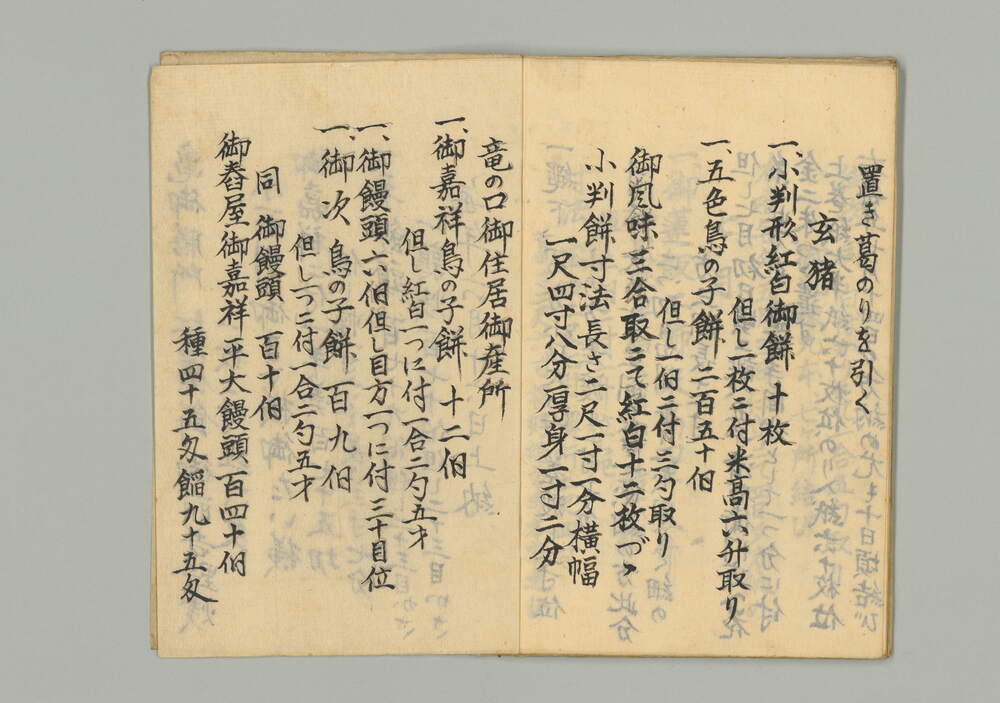 置き葛のりを引く
玄猪
一、小判形紅白御餅 十枚
但し一枚ニ付米高六升取り
一、五色鳥の子餅 二百五十㐰
但し一㐰ニ付三勺取り
御風味三合取ニて紅白十二枚づゝ
小判餅寸法長さ二尺一寸一分横幅
一尺四寸八分厚身一寸二分
竜の口御住居御産所
一、御嘉祥鳥の子餅 十二㐰
但し紅白一つに付一合二勺五才
一、御饅頭六㐰但し目方一つに付三十目位
一、御次 鳥の子餅 百九㐰
但し一つニ付一合二勺五才
同 御饅頭 百十㐰
御舂屋御嘉祥平大饅頭百四十㐰
種四十五匁餡九十五匁